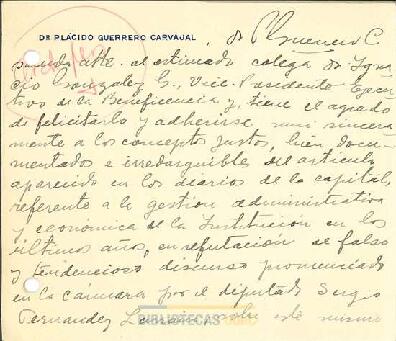 DR PLÁCIDO GUERRERO CARVAJAL
Dr PlGuerrero C.
saluda atte. al estimado colega dr Igna
cio Gonzalez G., Vice-Presidente Ejecu
tivo de la Beneficencia y tiene el agrado
de felicitarlo y adherirse, muy sincera
mente a los conceptos justos, bien docu-
mentados e irredarguible del artículo
aparecido en los diarios de la capital,
referente a la gestion administrativa
y economica de la Institucion en los
últimos años, en refutacion al falso
y tendencioso discurso pronunciado
en la cámara por el diputado Sergio
Fernandez Larrain, sobre este mismo
BIBLIOTECA